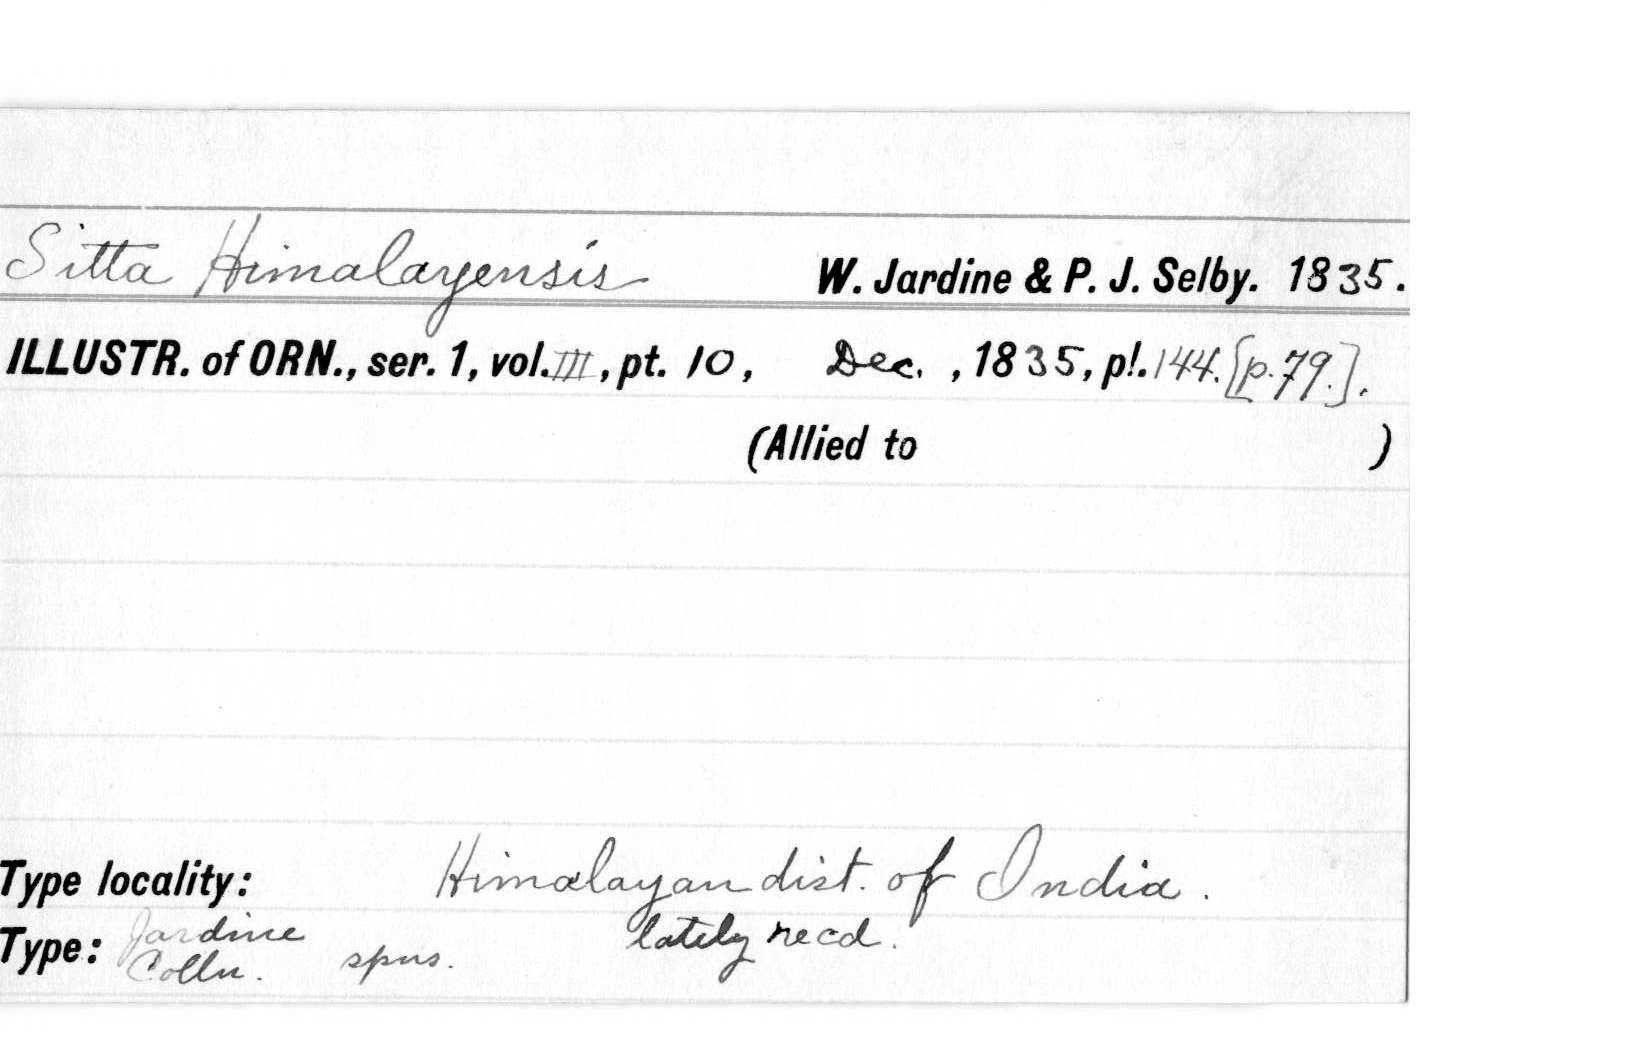 Sitta Himalayensis W. Jardine & P. J. Selby. 1835.
ILLUSTR. of ORN., ser. 1, vol. III, pt. 10, Dec. , 1835, pl. 144. [p. 79.].
(Allied to )
Type locality: Himalayan dist. of India.
Type: Jardine Colln. spns. lately recd.